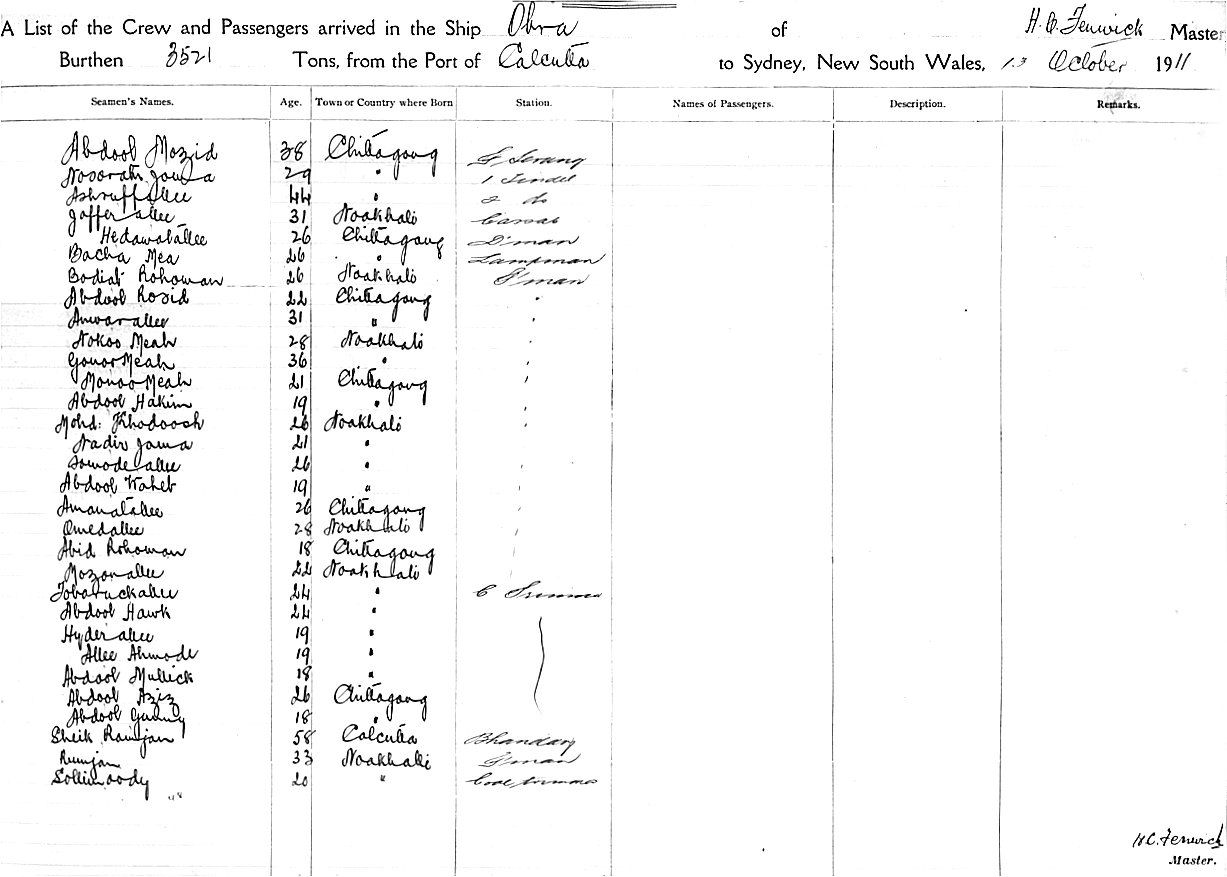 A List of the Crew and Passengers arrived in the Ship Obra of H.C. Fenwick Master
Burthen 3521 Tons, from the Port of Calcutta to Sydney, New South Wales, 13 October 1911
Seamen's Names. Age. Town or Country where Born Station. Names of Passengers. Description. Remarks.
Abdool Mozid 38 Chittagong F. Serang
Noorath Joma 29 " 1 Tindel
Ashruffallee 44 " 2 do
Jaffer allee 31 Noakhali Cassab
Hedawatallee 26 Chittagong D'man
Bacha Mea 26 " Lampman
Bodiat Rohoman 26 Noakhali F'man
Abdool Rosid 22 Chittagong "
Anwarallee 31 " "
Nokoo Meah 28 Noakhali "
Gonor Meah 36 " "
Monoo Meah 21 Chittagong "
Abdool Hakim 19 " "
Mohd: Khodoosh 26 Noakhali "
Nadir Joma 21 " "
Somode allee 26 " "
Abdool Waheb 19 " "
Amanatallee 26 Chittagong "
Omedallee 28 Noakhali "
Abid Rohoman 18 Chittagong "
Mozaallee 22 Noakhali "
Tobaruckallee 24 " C Trimmer
Abdool Hawk 24 "
Hyder allee 19 "
Allee Ahmode 19 "
Abdool Mullick 18 "
Abdool Aziz 26 Chittagong
Abdool 18 "
Sheik Ramjan 58 Calcutta Bhandary
Rumjan 33 Noakhalli F'man
Sollimoody 20 " Coal trimmer
H.C. Fenwick
Master.